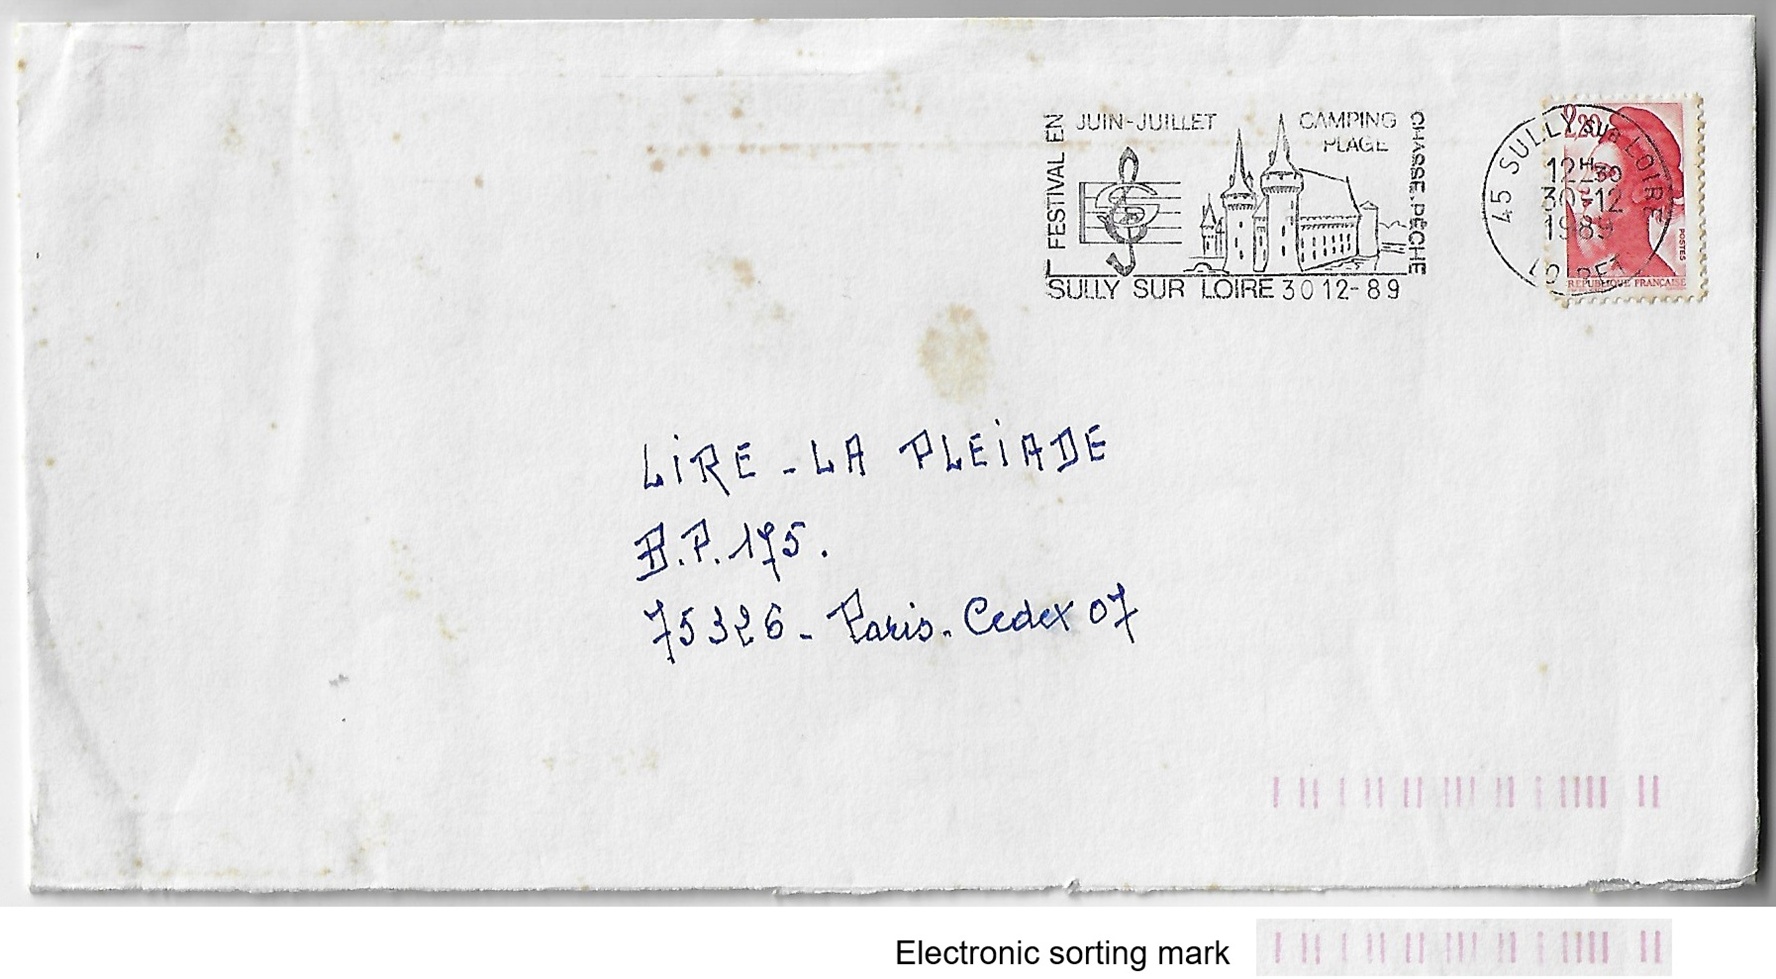 FESTIVAL EN
JUIN-JUILLET
CAMPING
PLAGE
CHASSE, PÊCHE
SULLY SUR LOIRE 30 12-89
45 SULLY SUR LOIRE
12H30
30-12
1989
LOIRET
2,20
POSTES
REPUBLIQUE FRANÇAISE
LIRE - LA PLEIADE
B.P. 175.
75326 - Paris. Cedex 07
Electronic sorting mark